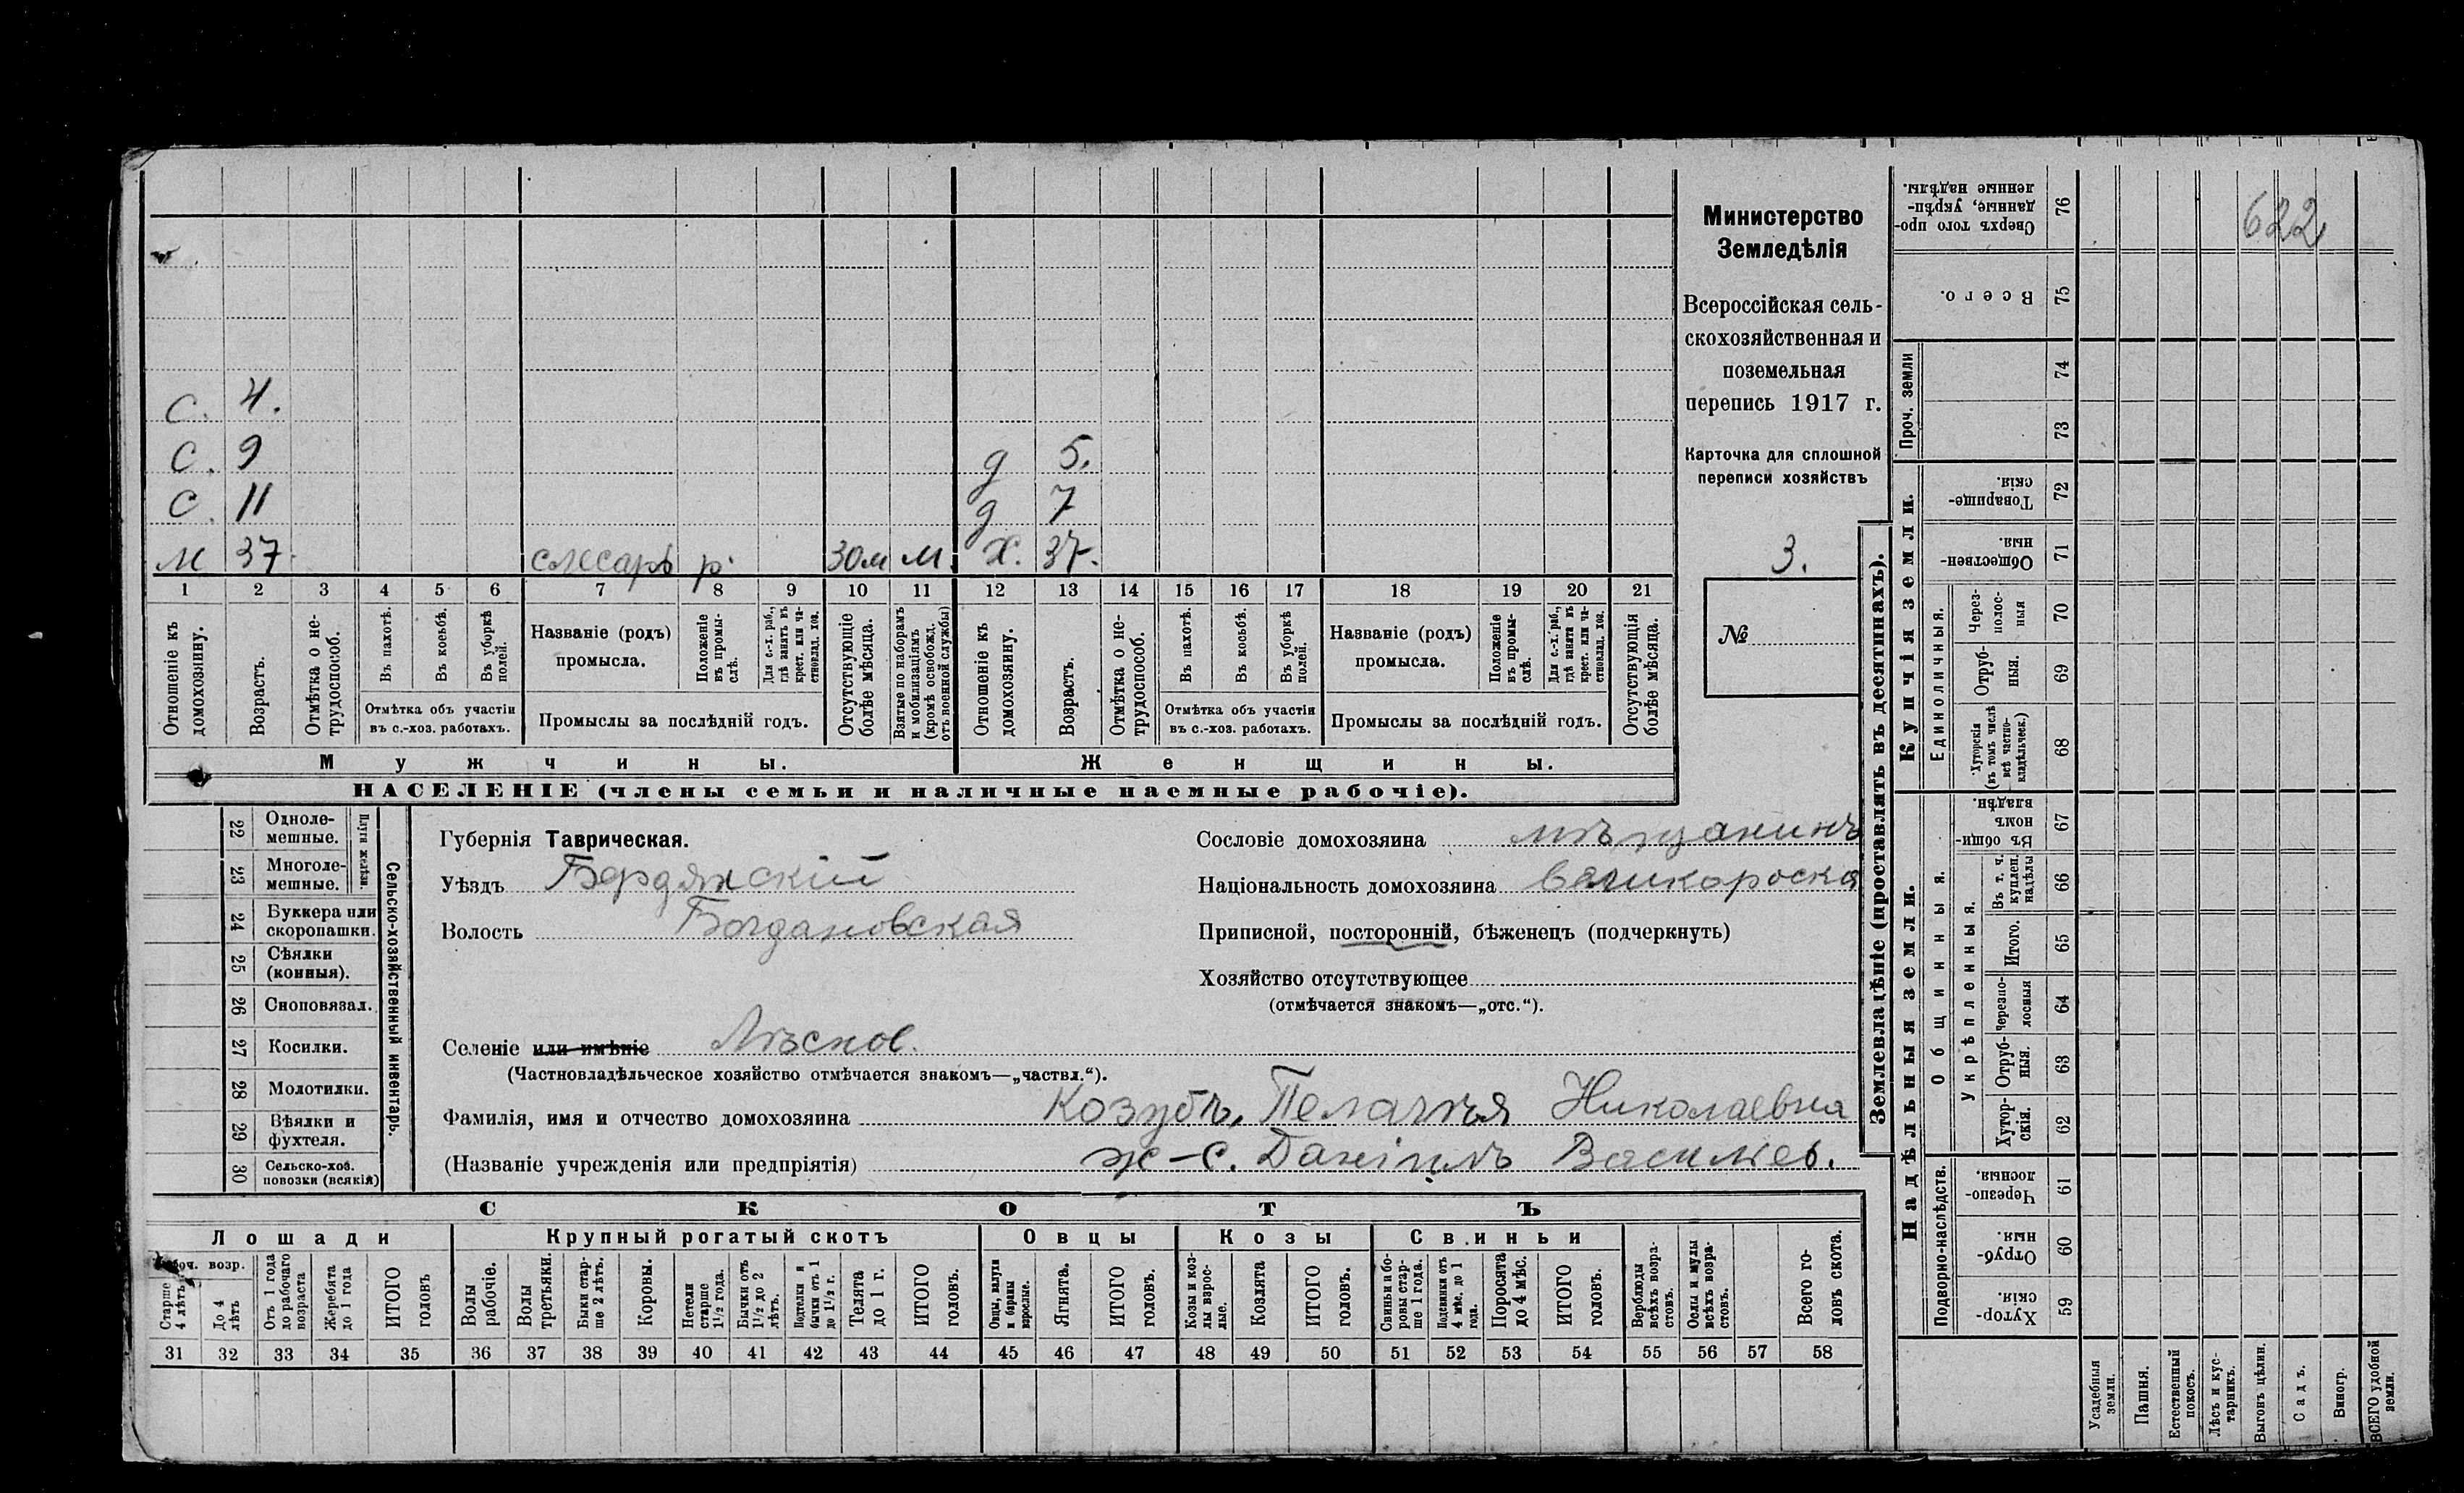 С. 4.
С. 9 д 5.
С. 11 д 7
М 37. слесарь р. 30 м М. Х. 37.
1 2 3 4 5 6 7 8 9 10 11 12 13 14 15 16 17 18 19 20 21
Отношеніе къ домохозяину.
Возрастъ.
Отмѣтка о не-
трудоспособ.
Въ пахотѣ.
Въ косьбѣ.
Въ уборкѣ полей.
Отмѣтка объ участіи
въ с.-хоз. работахъ.
Названіе (родъ)
промысла.
Положеніе въ промы-
слѣ.
Для с.-х. раб.,
гдѣ занятъ въ
крест. или ча-
стновлад. хоз.
Промыслы за послѣдній годъ.
Отсутствующіе
болѣе мѣсяца.
Взятые по наборамъ
и мобилизаціямъ
(кромѣ освобожд.
отъ военной службы)
Отношеніе къ
домохозяину.
Возрастъ.
Отмѣтка о не-
трудоспособ.
Въ пахотѣ.
Въ косьбѣ.
Въ уборкѣ
полей.
Отмѣтка объ участіи
въ с.-хоз. работахъ.
Названіе (родъ)
промысла.
Положеніе
въ промы-
слѣ.
Для с.-х. раб.,
гдѣ занята въ
крест. или ча-
стновлад. хоз.
Промыслы за послѣдній годъ.
Отсутствующія
болѣе мѣсяца.
Мужчины. Женщины.
НАСЕЛЕНІЕ (члены семьи и наличные наемные рабочіе).
Министерство
Земледѣлія
Всероссійская сель-
скохозяйственная и
поземельная
перепись 1917 г.
Карточка для сплошной
переписи хозяйствъ
3.
№
22 Одноле-
мешные.
23 Многоле-
мешные.
Плуги желѣзн.
24 Буккера или
скоропашки.
25 Сѣялки
(конныя).
26 Сноповязал.
27 Косилки.
28 Молотилки.
29 Вѣялки и
фухтеля.
30 Сельско-хоз.
повозки (всякія)
Сельско-хозяйственный инвентарь.
Губернія Таврическая.
Уѣздъ Бердянскій
Волость Богдановская
Селеніе или имѣніе Лѣсное.
(Частновладѣльческое хозяйство отмѣчается знакомъ—„частвл.“).
Фамилія, имя и отчество домохозяина Козубъ, Пелагѣя Николаевна
(Названіе учрежденія или предпріятія) ж-с. Даніилъ Васильев.
Сословіе домохозяина мѣщанинъ
Національность домохозяина великороска
Приписной, посторонній, бѣженецъ (подчеркнуть)
Хозяйство отсутствующее
(отмѣчается знакомъ—„отс.“).
СКОТЪ
Лошади Крупный рогатый скотъ Овцы Козы Свиньи
Рабоч. возр.
Старше
4 лѣтъ
До 4
лѣтъ
Отъ 1 года
до рабочаго
возраста
Жеребята
до 1 года
ИТОГО
головъ
Волы
рабочіе.
Волы
третьяки.
Быки стар-
ше 2 лѣтъ.
Коровы.
Нетели
старше
1½ года.
Бычки отъ
1½ до 2
лѣтъ.
Подтелки и
бычки отъ 1
до 1½ г.
Телята
до 1 г.
ИТОГО
головъ.
Овцы, валухи
и бараны
взрослые.
Ягнята.
ИТОГО
головъ.
Козы и коз-
лы взрос-
лые.
Козлята
ИТОГО
головъ.
Свиньи и бо-
ровы стар-
ше 1 года.
Подсвинки отъ
4 мѣс. до 1
года.
Поросята
до 4 мѣс.
ИТОГО
головъ.
Верблюды
всѣхъ возра-
стовъ.
Ослы и мулы
всѣхъ возра-
стовъ.
Всего го-
ловъ скота.
31 32 33 34 35 36 37 38 39 40 41 42 43 44 45 46 47 48 49 50 51 52 53 54 55 56 57 58
Землевладѣніе (проставлять въ десятинахъ).
622
Сверхъ того про-
данные, укрѣп-
ленные надѣлы.
76
Всего.
75
Проч. земли
74
73
Купчія земли.
Товарище-
скія.
72
Обществен-
ныя.
71
Единоличныя.
Через-
полос-
ныя
70
Отруб-
ныя.
69
Хуторскія
(въ томъ числѣ
всѣ частно-
владѣльческ.)
68
Надѣльныя земли.
Общинныя.
Въ общин-
номъ
владѣн.
67
Укрѣпленныя.
Въ т. ч.
куплен.
надѣлы
66
Итого.
65
Черезпо-
лосныя
64
Отруб-
ныя.
63
Хутор-
скія.
62
Подворно-наслѣдств.
Черезпо-
лосныя.
61
Отруб-
ныя.
60
Хутор-
скія.
59
Усадебныя
земли.
Пашня.
Естественный
покосъ.
Лѣсъ и кус-
тарникъ.
Выгонъ цѣлин.
Садъ.
Виногр.
ВСЕГО удобной
земли.